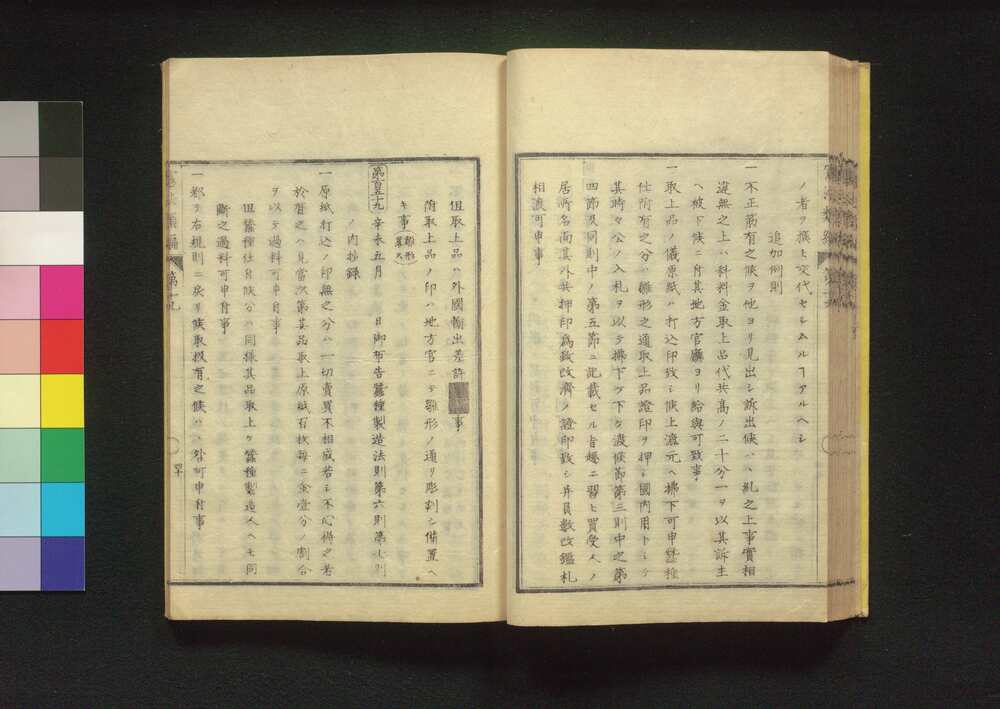 ノ者ヲ撰ヒ交代セシムルヿアルヘシ
追加例則
一不正筋有之候ヲ他ヨリ見出シ訴出候ハヽ糺之上事實相
違無之上ハ科料金取上品代共高ノ二十分一ヲ以其訴主
ヘ被下候ニ付其地方官廳ヨリ給與可致事
一取上品ノ儀原紙ハ打込印致シ候上濾元ヘ拂下可申蠶種
仕附有之分ハ雛形之通取上品證印ヲ押シ國内用トシテ
其時々公ノ入札ヲ以テ拂下ケ下ケ渡候節第三則中之第
四節及同則中ノ第五節ニ記載セル旨趣ニ習ヒ買受人ノ
居所名面其外共押印爲致改濟ノ證印致シ弁員數改鑑札
相渡可申事
但取上品ハ外國輸出差許事
附取上品ノ印ハ地方官ニテ雛形ノ通リ彫刻シ備置ヘ
キ事
第百五十九 辛未五月 日御布告蠶種製造法則第六則第七則
ノ内抄録
一原紙打込ノ印無之分ハ一切賣買不相成若シ不心得之者
於有之ハ見當次第其品取上原紙壱枚毎ニ金壹分ノ割合
ヲ以テ過料可申付事
但蠶種仕付候分ハ同様其品取上ケ蠶種製造人ヘモ同
斷之過料可申付事
一都テ右規則ニ戻リ候取扱有之候ハヽ咎可申付事
第十九